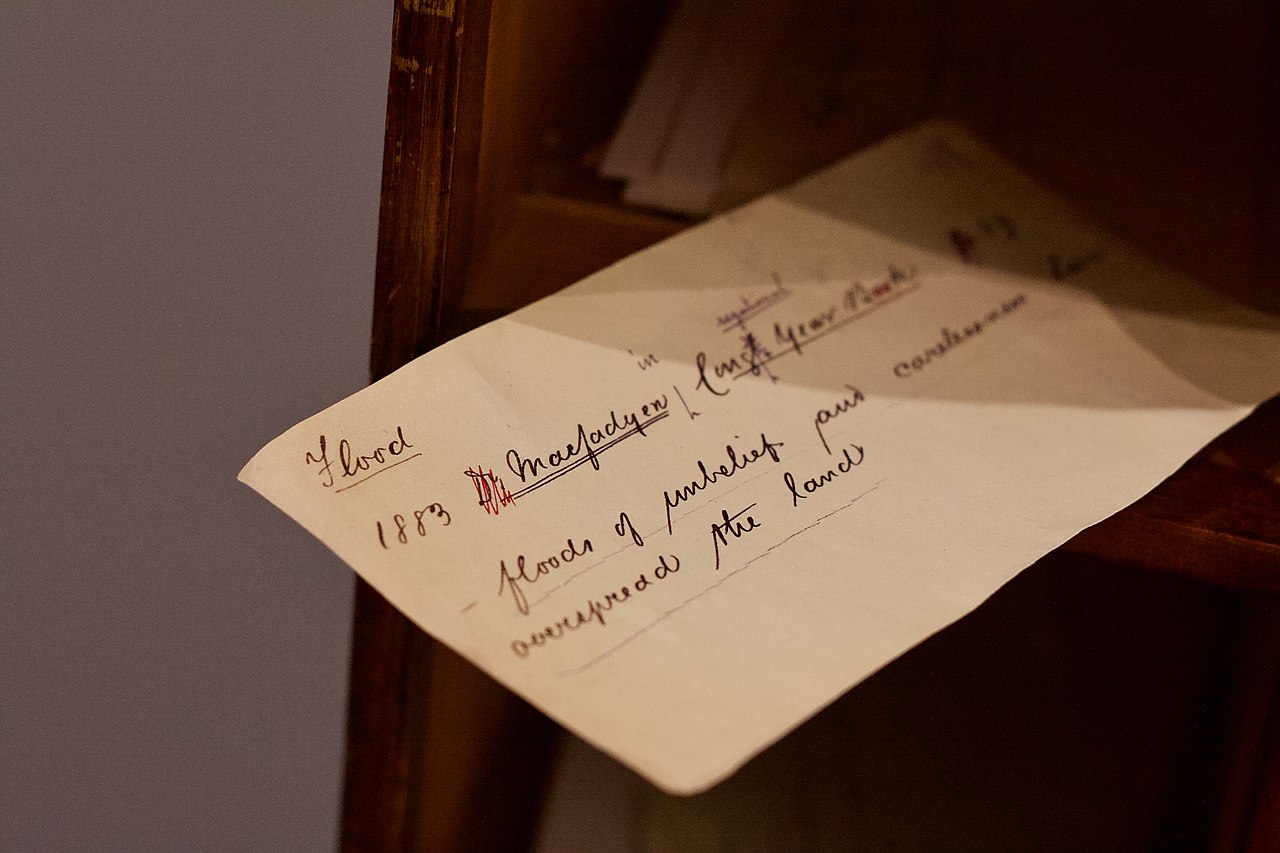 Flood
1883 Macfadyen in Congl. Year Book.
– floods of unbelief and carelessness
overspread the land